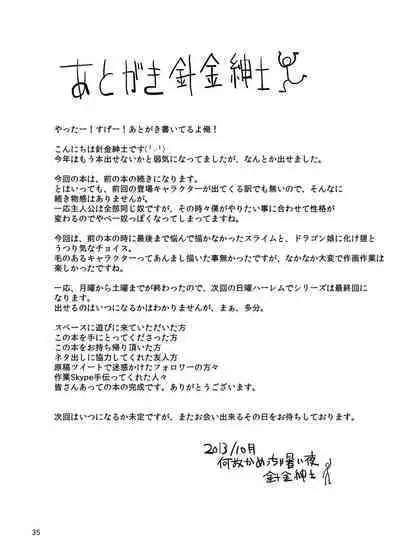 あとがき 針金紳士
やったー！すげー！あとがき書いてるよ俺！
こんにちは針金紳士です(╵-╵)
今年はもう本出せないかと弱気になってましたが、なんとか出せました。
今回の本は、前の本の続きになります。
とはいっても、前回の登場キャラクターが出てくる訳でも無いので、そんなに
続き物感はありませんが。
一応主人公は全部同じ奴ですが、その時々僕がやりたい事に合わせて性格が
変わるのでやべー奴っぽくなってしまってますね。
今回は、前の本の時に最後まで悩んで描かなかったスライムと、ドラゴン娘に化け狸と
うっつり気なチョイス。
毛のあるキャラクターってあんまし描いた事無かったですが、なかなか大変で作画作業は
楽しかったですね。
一応、月曜から土曜までが終わったので、次回の日曜ハーレムでシリーズは最終回に
なります。
出せるのはいつになるかはわかりませんが、まぁ、多分。
スペースに遊びに来ていただいた方
この本を手にとってくださった方
この本をお持ち帰り頂いた方
ネタ出しに協力してくれた友人方
原稿ツイートで迷惑かけたフォロワーの方々
作業Skype手伝ってくれた人々
皆さんあっての本の完成です。ありがとうございます。
次回はいつになるか未定ですが、またお会い出来るその日をお待ちしております。
2013/10月
何故かめっちゃ暑い夜
針金紳士
35